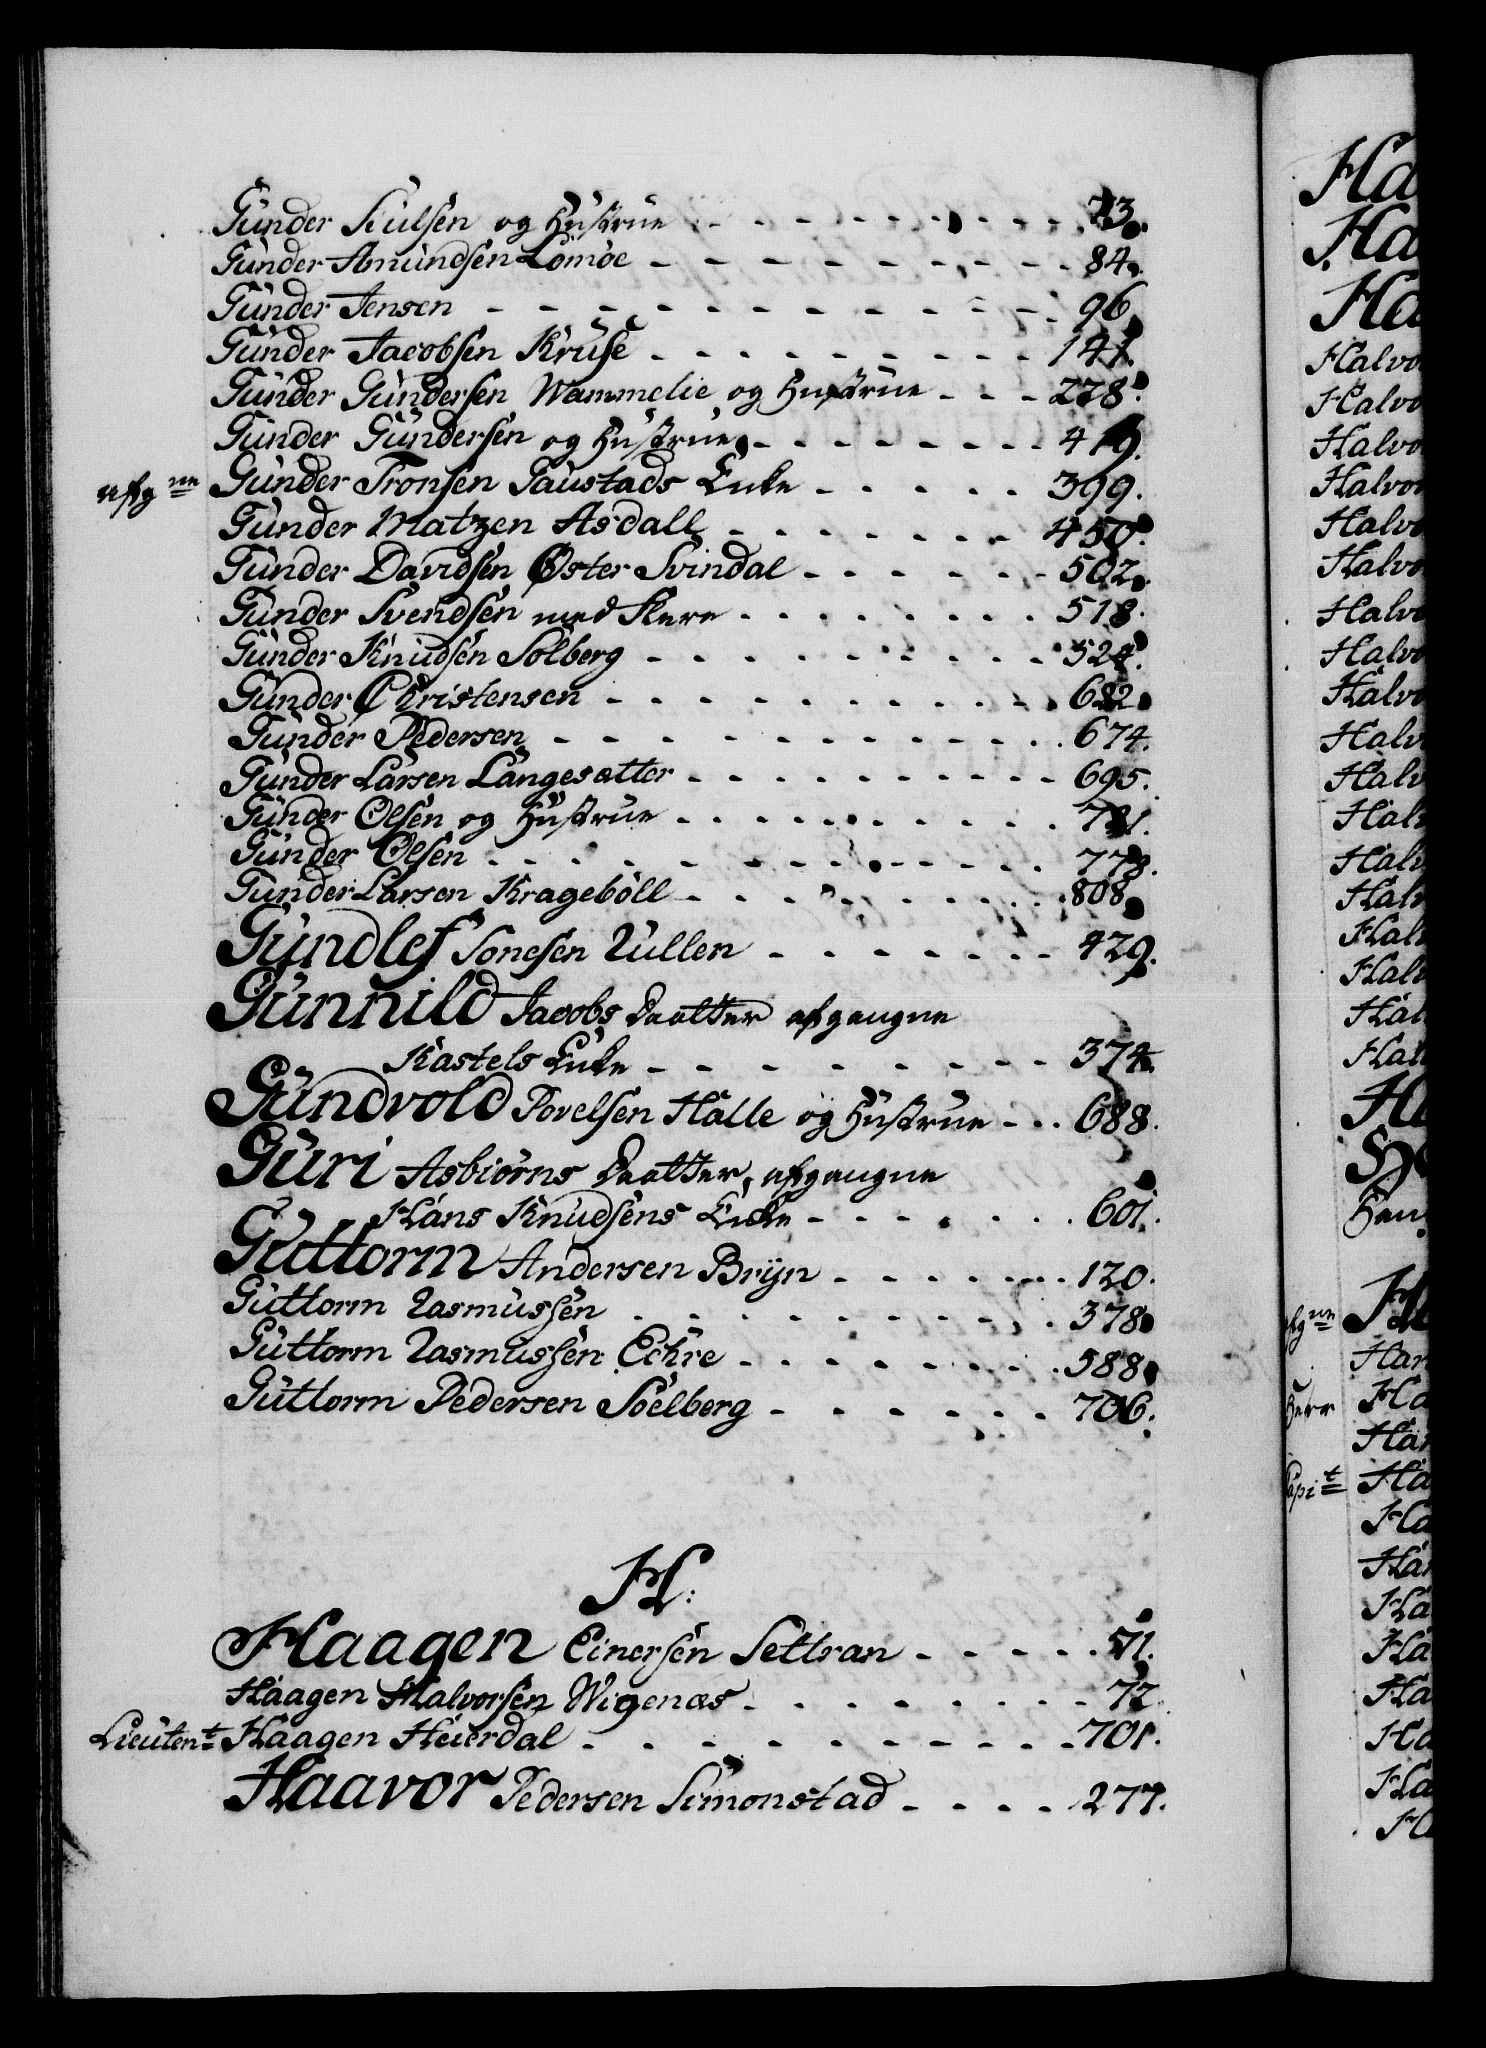 Gunder Siulsen og Hustrue - - - - - - - - - 73.
Gunder Amundsen Lomoe - - - - - - - - - - 84.
Gunder Jensen - - - - - - - - - - - - - 96.
Gunder Jacobsen Kruse - - - - - - - - - 141.
Gunder Gundersen Wammelie og Hustrue - - - 228.
Gunder Gundersen og Hustrue - - - - - - - - 419.
afg ne Gunder Tronsen Gaustads Enke - - - - - 399.
Gunder Matzen Asdall - - - - - - - 450.
Gunder Davidsen Øster Svindal - - - - - - 502.
Gunder Svendsen med Flere - - - - - - - - 518.
Gunder Knudsen Solberg - - - - - - - - - 524.
Gunder Christensen - - - - - - - - - - - 622.
Gunder Pedersen - - - - - - - - - - - - 674.
Gunder Larsen Langesætter - - - - - - - - - 695.
Gunder Olsen og Hustrue - - - - - - - - - 721.
Gunder Olsen - - - - - - - - - - - - 778.
Gunder Larsen Krageböll - - - - - - - - - 808.
Gundlef Sonesen Rullen - - - - - - - 429.
Gunnild Jacobs Daatter afgangne
Kastels Enke - - - - - - - - - 374.
Gundvold Povelsen Halle og Hustrue - - - 688.
Guri Asbiörns Daatter, afgangne
Hans Knudsens Enke - - - - - - - 601.
Guttorm Andersen Bryn - - - - - - - 120.
Guttorm Rasmussen - - - - - - - - - - 378.
Guttorm Rasmussen Echre - - - - - - - - 588.
Guttorm Pedersen Soelberg - - - - - - - 706.
H:
Haagen Einersen Settran - - - - - 51.
Haagen Halvorsen Wigenæs - - - - - - - - 72.
Lieuten t Haagen Heierdal - - - - - - - - - - 701.
Haavor Pedersen Simonstad - - - - 277.